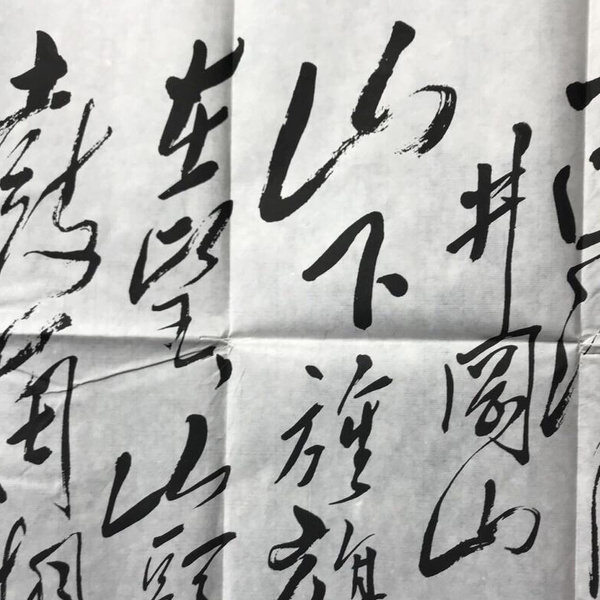 井岡山
山下旌旗
在望山頭
鼓角相